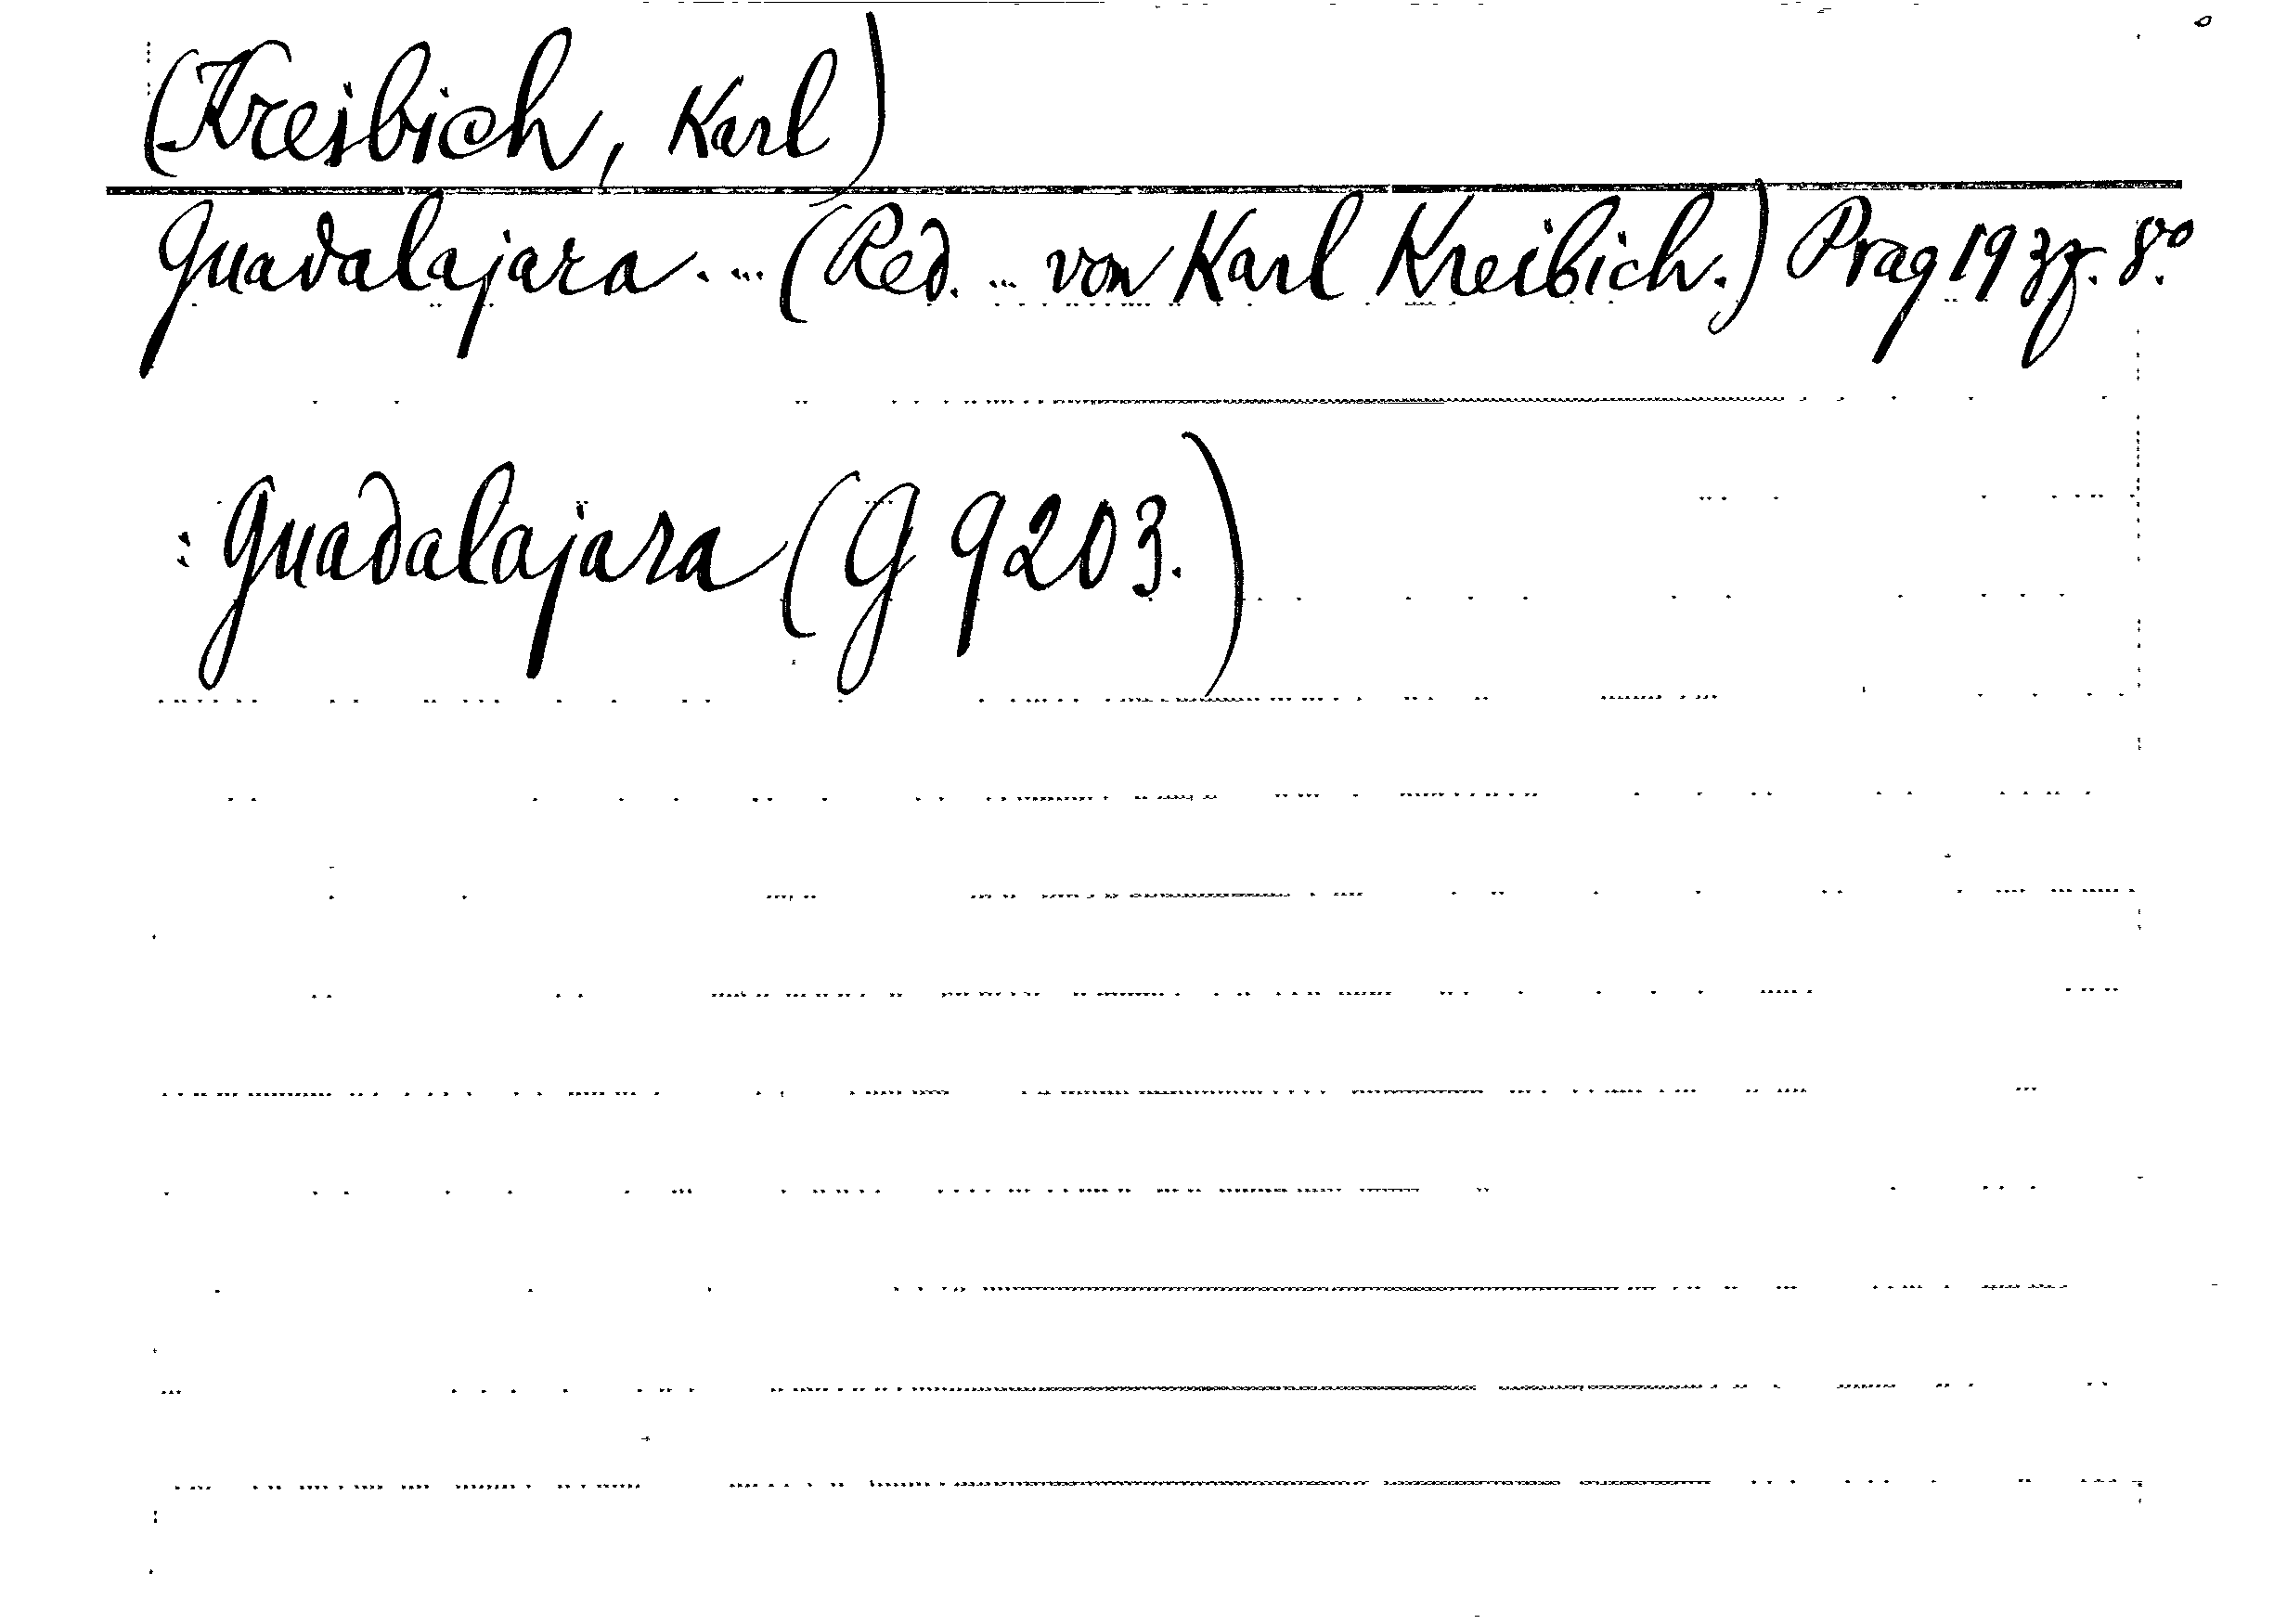 (Kreibich, Karl)
Guadalajara. ... (Red. ... von Karl Kreibich.) Prag 1937. 8°.
: Guadalajara (G 9203.)